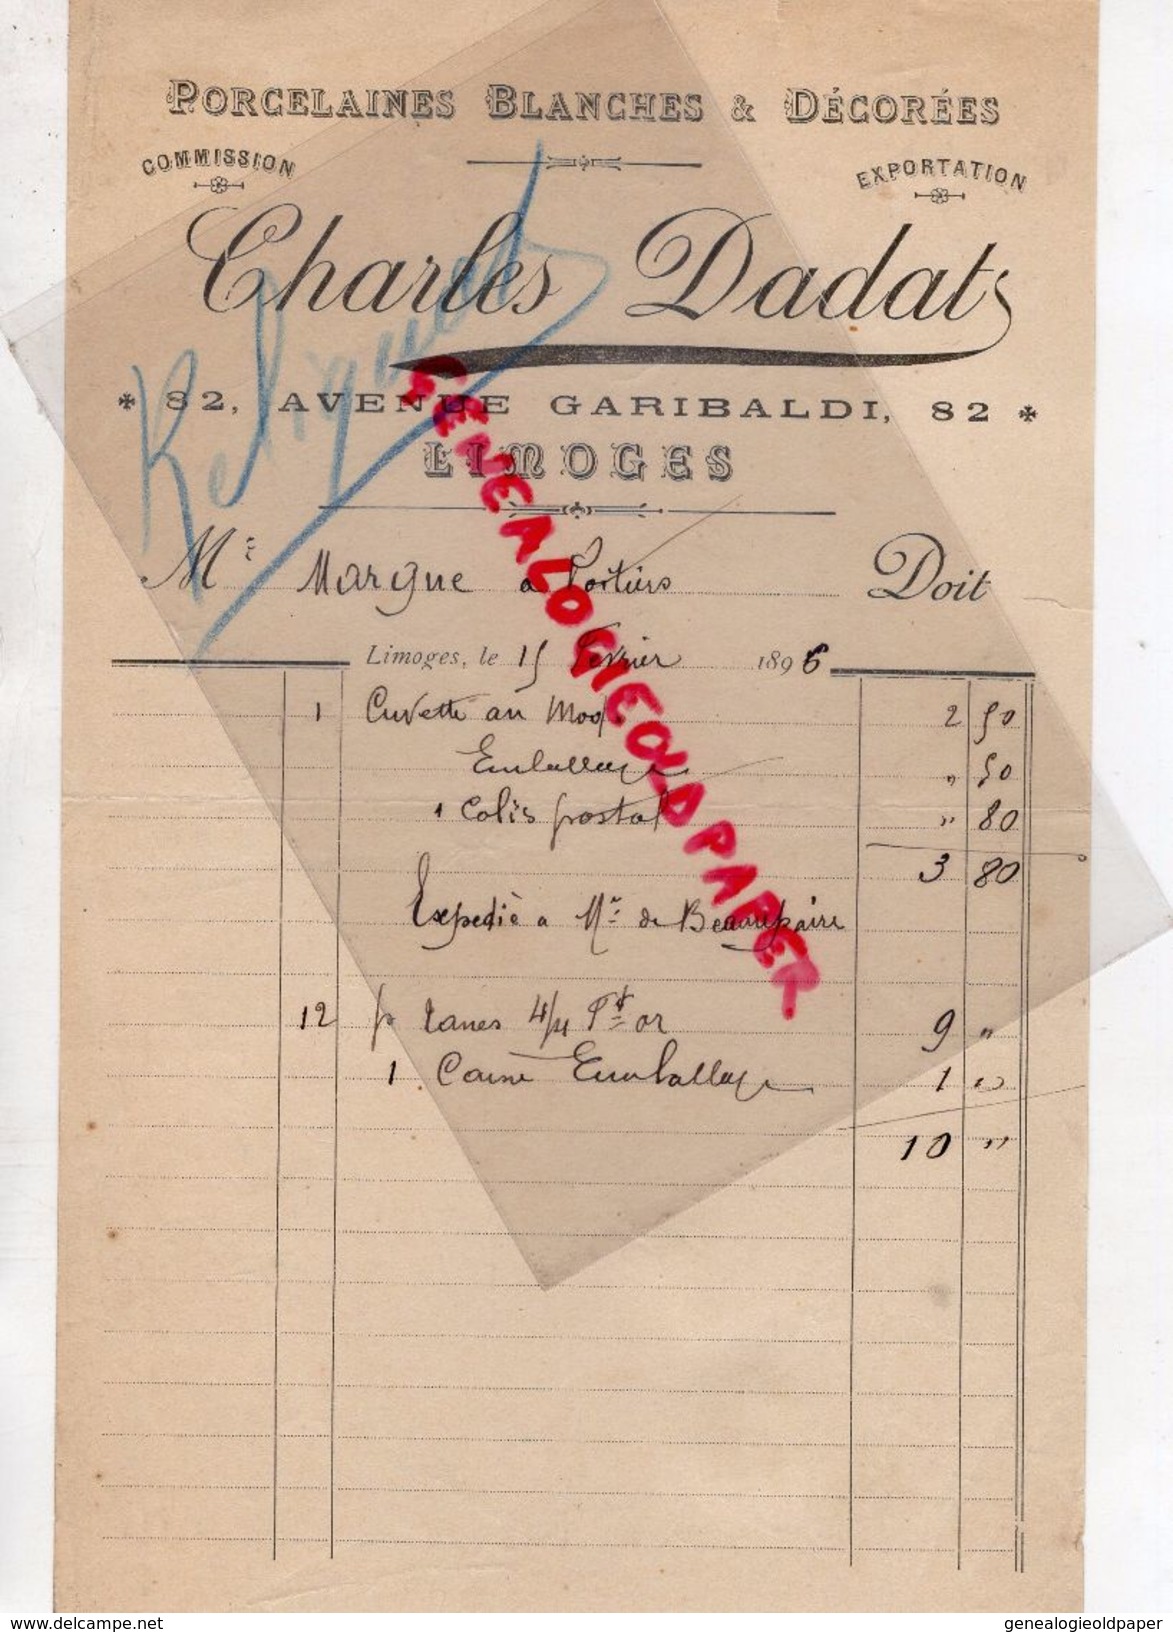 PORCELAINES BLANCHES & DÉCORÉES
COMMISSION
EXPORTATION
Charles Dadat
82, AVENUE GARIBALDI, 82
LIMOGES
Mr Margue a Poitiers Doit
Limoges, le 15 Fevrier 1896
1 Cuvette au Mod 2 50
Emballage " 50
1 Colis postal " 80
3 80
Expedié a Mr de Beaurepaire
12 p tasses 4/4 or 9 "
1 Caisse Emballage 1 "
10 "
GENEALOGIEOLDPAPER
www.delcampe.net
genealogieoldpaper